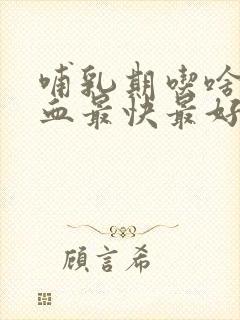 哺乳期喫啥
血最快最好
顧言希